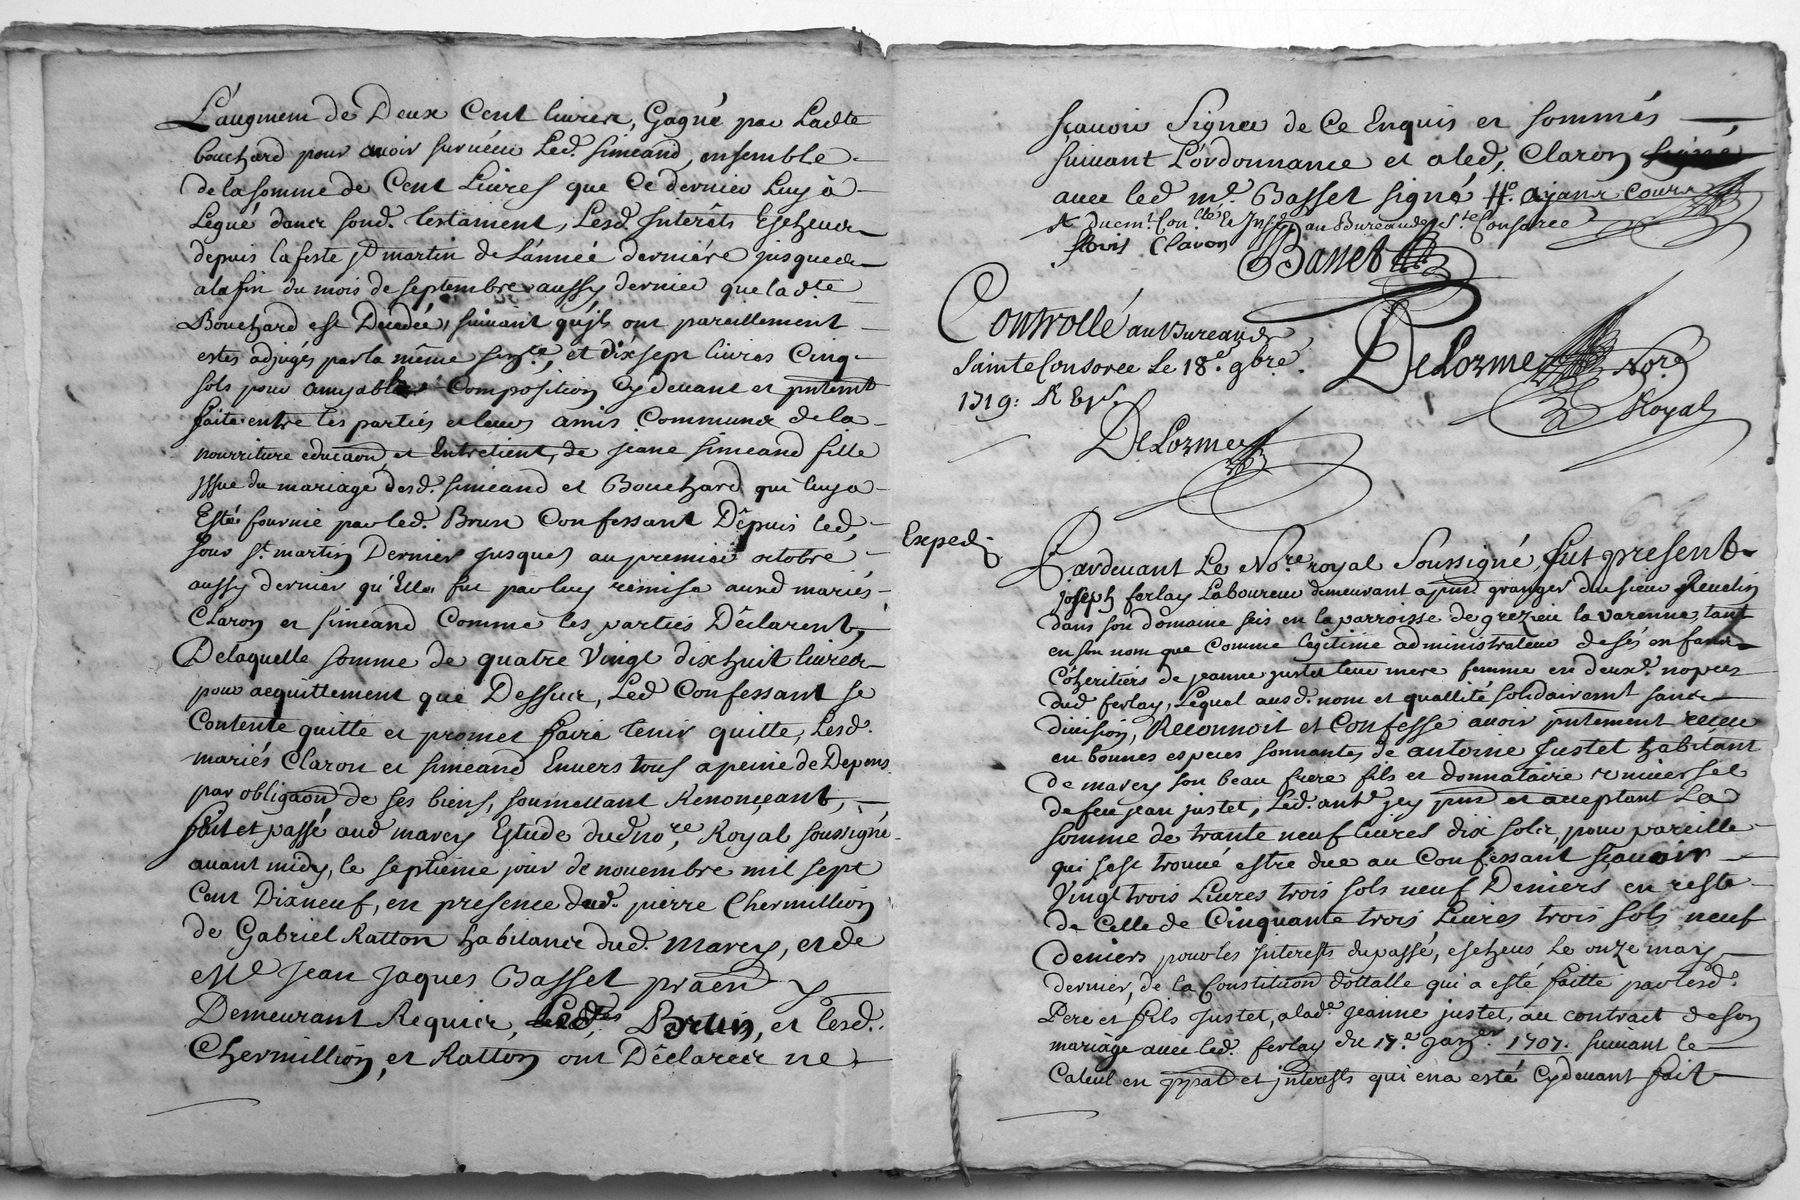 L'augment de Deux Cent livres, Gagné par Ladte
bouchard pour avoir survécu Led. simeand, ensemble
de la somme de Cent Livres que Ce dernier Luy a
Legué dans sond. testament, Lesd. Interêts Escheus
depuis la feste st martin de L'année derniére jusques
a la fin du mois de septembre aussy dernier que lad.te
Bouchard est Decedée, suivant qu'jls ont pareillement
estés adjugés par la même sen.ce, et dix sept livres Cinq
sols pour amyable Composition Cydevant et pntemt
faite entre les parties et leurs amis Communs de la
nourriture educaon, et Entretient, de jeane simeand fille
jssue du mariage desd. simeand et Bouchard qui luy a
Estés fournie par led. Brun Confessant Dêpuis led.
jour st. martin Dernier jusques au premier octobre
aussy dernier qu'Elle fut par luy remise ausd mariés
Claron et simeand Comme les parties Dêclarent,
De laquelle somme de quatre Vingt dix huit livres
pour acquittement que Dessus, Led Confessant se
Contente quitte et promet faire tenir quitte, Lesd.
mariés Claron et simeand Envers tous a peine de Depens
par obligaon de ses biens, soumettant Renonçeant,
fait et passé aud marcy Estude dud no.re Royal soussigné
avant midy, le septieme jour de novembre mil sept
Cent Dix neuf, en presence dud. pierre Chermillion
de Gabriel Ratton habitants dud. Marcy, et de
Me Jean Jaques Basset praen y
Demeurant Requis, Brun, et lesd.
Chermillion, et Ratton ont Dêclarés ne
sçavoir Signer de Ce Enquis et sommés
suivant L'ordonnance et a led. Claron signé
avec led m.e Basset signé
Claron Basset
Controllé au Bureau de
Sainte Consorce Le 18.e 9bre.
1719:
DeLorme No.re
Royal
DeLorme
Exped.
Pardevant Le No.re royal Soussigné, fut present
joseph ferlay Laboureur demeurant a pnt granger du sieur
dans son dômaine sis en la parroisse de grezieu la varenne, tant
en son nom que Comme legitime administrateur de sés enfans
Côheritiérs de jeanne justet leur mere femme en deux.e nopces
dud ferlay, Lequel ausd. nom et quallité solidairemt sans
division, Reconnoit et Confesse avoir pntement receu
en bonnes especes sonnantes, de antoine Justet habitant
de marcy son beau frere fils et donnataire universel
de feu jean justet, Led. ant.e jcy pnt et acceptant La
somme de trante neuf livres dix sols, pour pareille
qui sest trouvé estre due au Confessant sçavoir
Vingt trois Livres trois sols neuf Deniers en reste
de Celle de Cinquante trois Livres trois sols neuf
deniers pour les Interests du passé, escheus le onze may
dernier, de la Constitution dottalle qui a esté faitte par lesd.
Pere et fils Justet, a lad.e jeanne justet, au contract de son
mariage avec led. ferlay du 17.e janv.er 1707. suivant le
Calcul en ppal et jnterests qui en a esté Cydevant fait